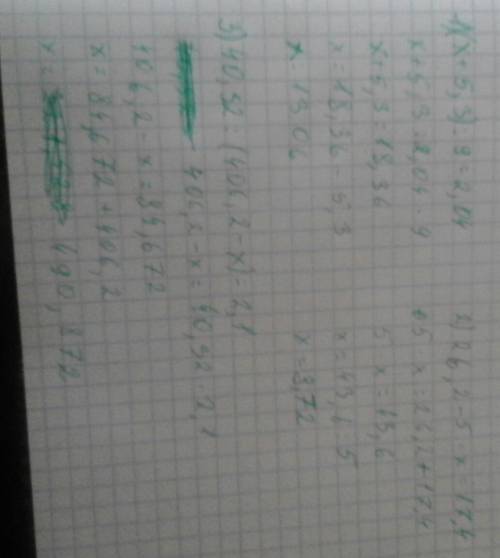 1) (x+5,3):9=2,04
x+5,3=2,04·9
x+5,3=18,36
x=18,36-5,3
x=13,06
2) 26,2-5·x=17,4
5·x=26,2+17,4
5·x=43,6
x=43,6:5
x=8,72
3) 40,32:(406,2-x)=2,1
406,2-x=40,32·2,1
406,2-x=84,672
x=84,672+406,2
x= 490,872